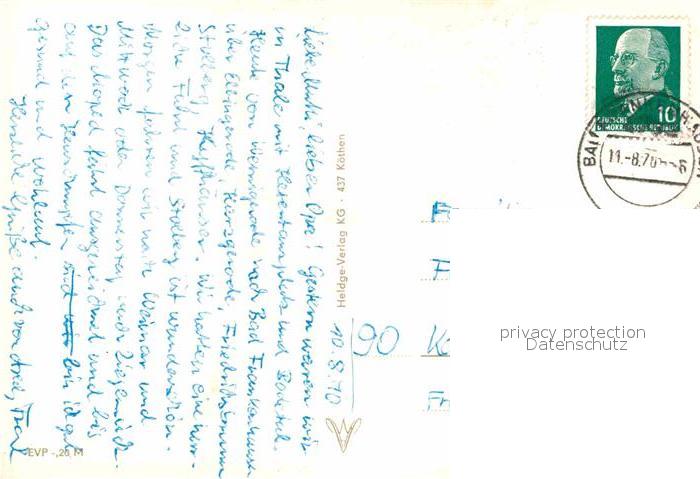 Liebe Mutti, lieber Opa! Gestern waren wir
in Thale mit Hexentanzplatz und Bodetal.
Heute von Wernigerode nach Bad Frankenhausen
über Elbingerode, Harzgerode, Friedrichsbrunn
Stolberg, Kyffhäuser. Wir hatten eine herr-
liche Fahrt und Stolberg ist wunderschön.
Morgen fahren wir nach Weimar und
Mittwoch oder Donnerstag nach Ziegenrück.
Das Moped fährt ausgezeichnet und bis
auf den bin ich ges
gesund und wohlauf.
Herzliche Grüße auch von
10.8.70
Heldge-Verlag KG · 437 Köthen
EVP -,20 M
10
DEUTSCHE
DEMOKRATISCHE REPUBLIK
BAD
11.-8.70
90 K
privacy protection
Datenschutz